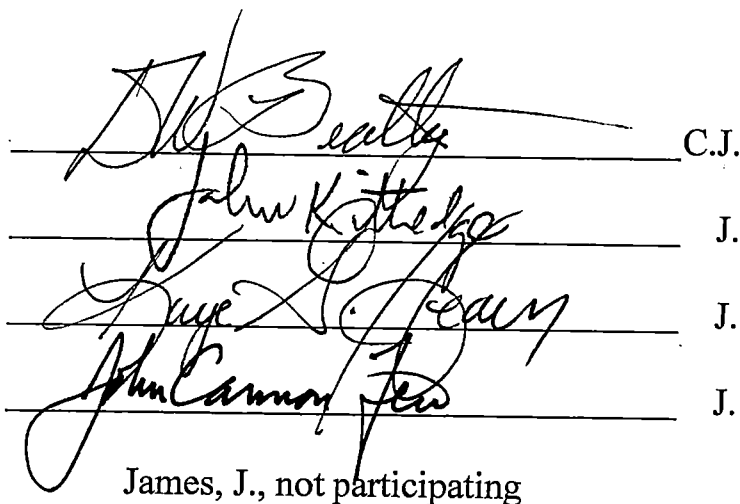 DW Beatty C.J.
John Kittredge J.
Kaye G. Hearn J.
John Cannon Few J.
James, J., not participating